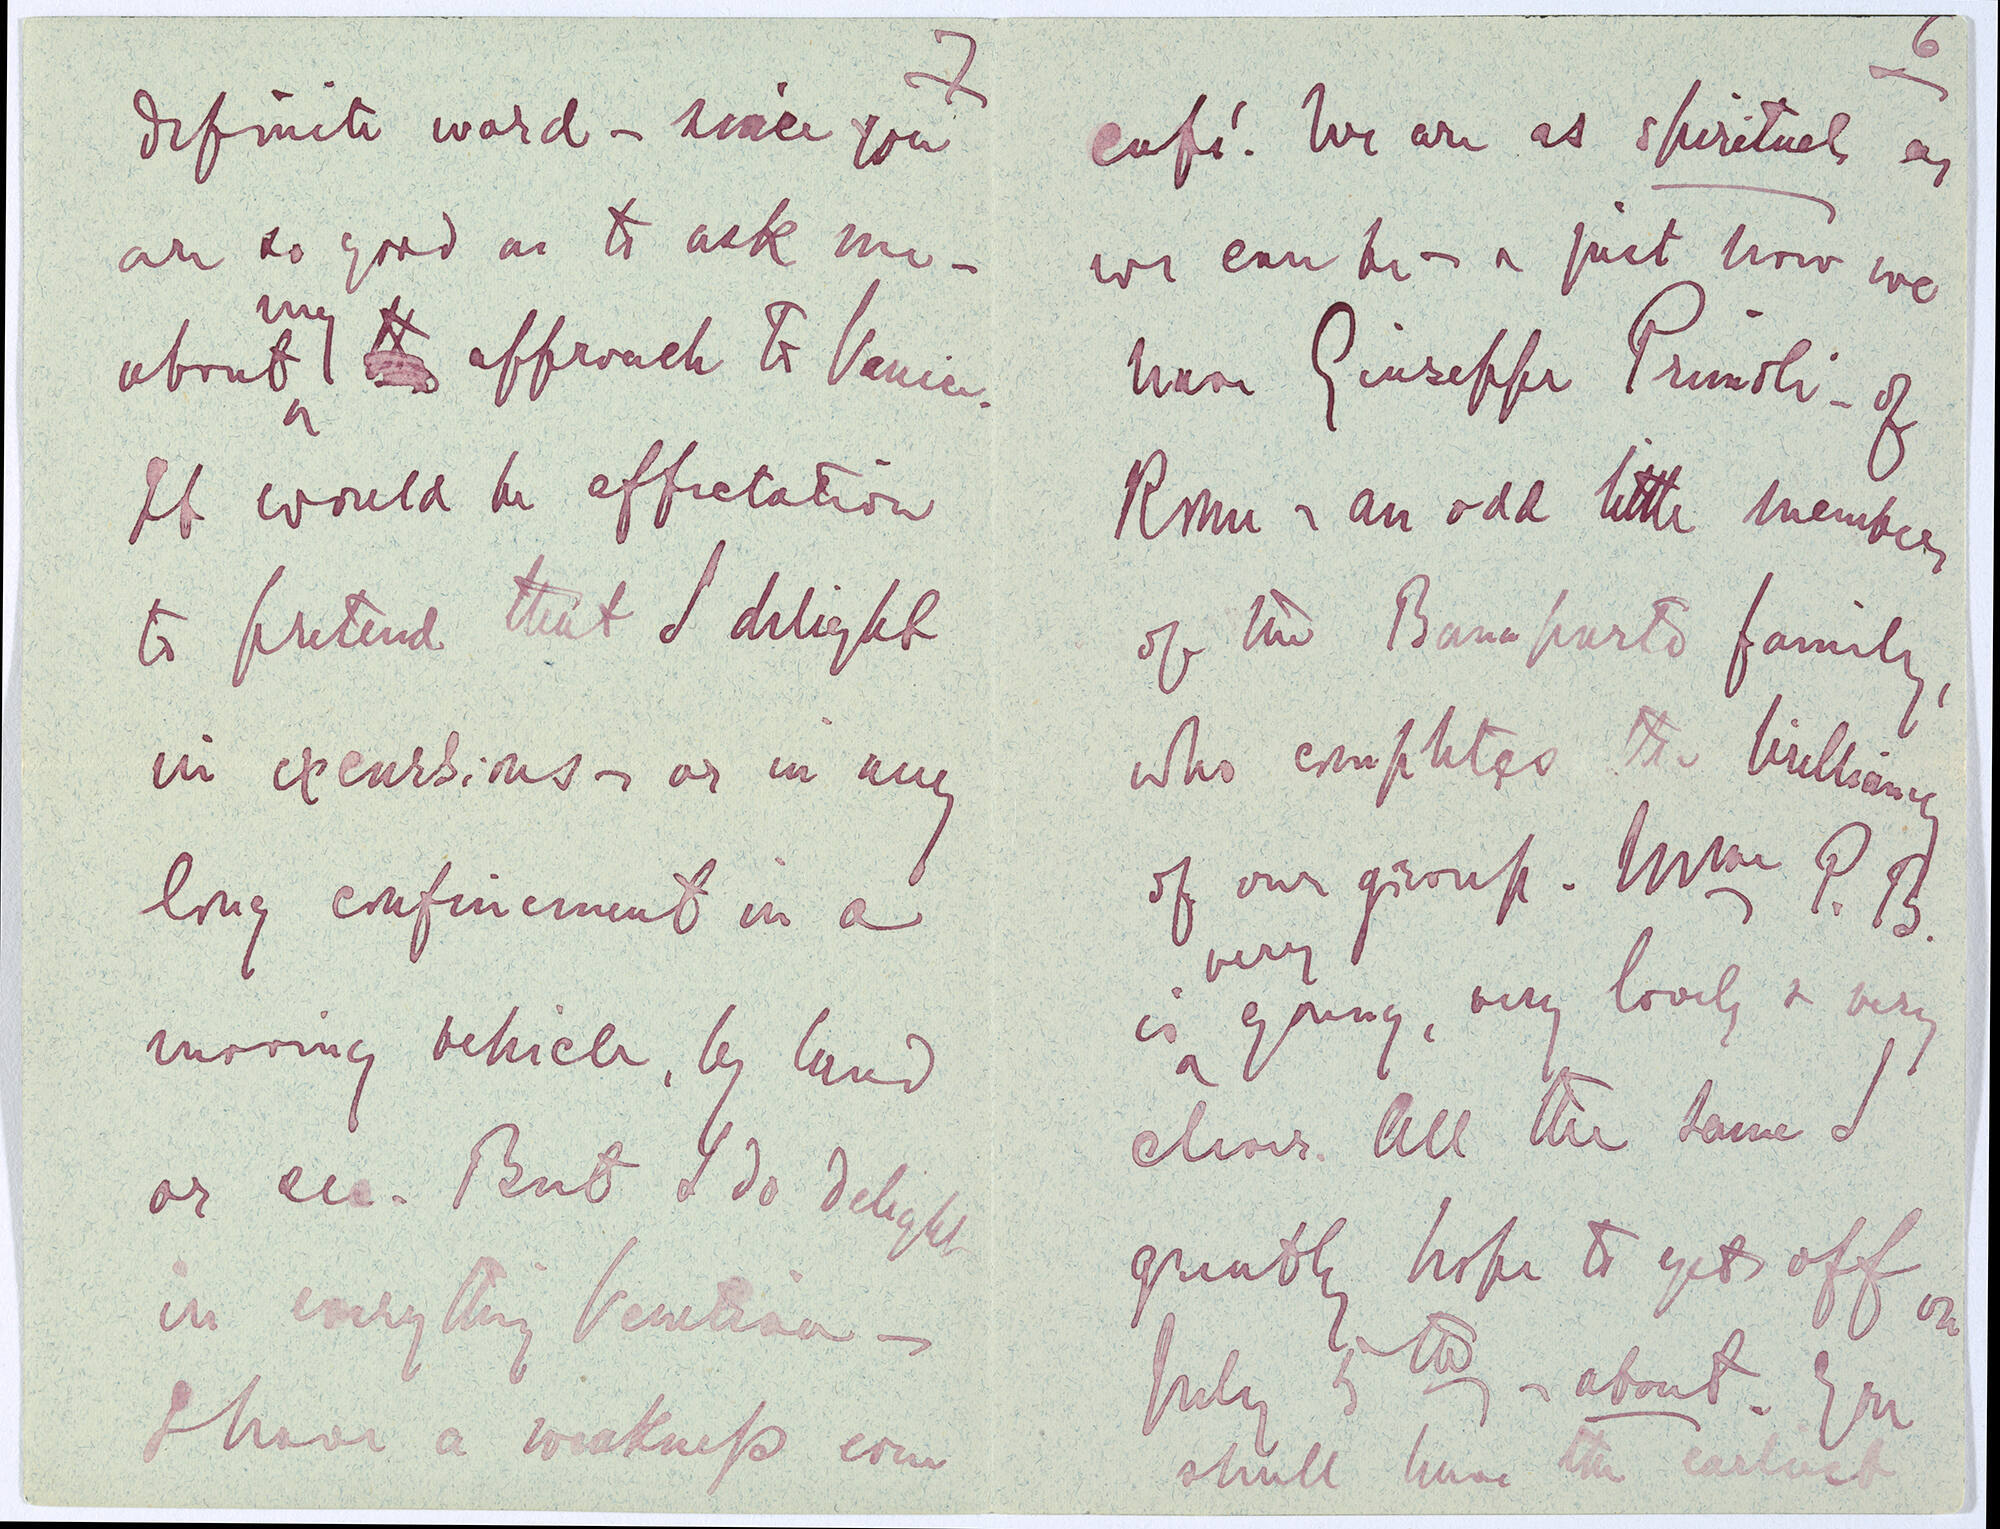 6
café. We are as spirituels as
we can be – & just now we
have Giuseppe Primoli – of
Rome – an odd little member
of the Bonaparte family,
who completes the brilliancy
of our group. Mme P. B.
is very young, very lovely & very
clever. All the same I
greatly hope to get off on
July 5th – about. You
shall have the earliest
7
definite word – since you
are so good as to ask me –
about my approach to Venice.
It would be affectation
to pretend that I delight
in excursions – or in any
long confinement in a
moving vehicle, by land
or sea. But I do delight
in everything Venetian –
I have a weakness com